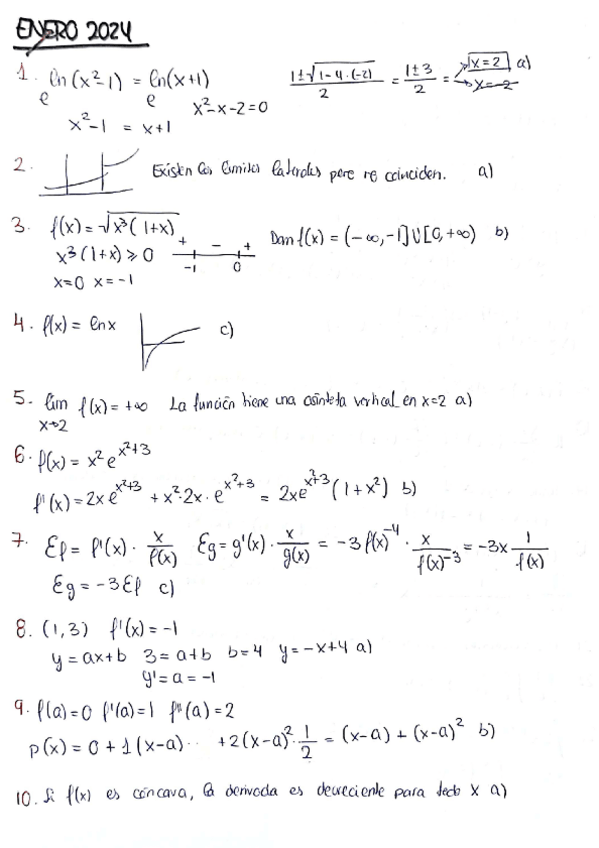 ENERO 2024
1. ln(x²-1) = ln(x+1)   (1±√(1-4·(-2)))/2 = (1±3)/2 = x=2 a)
e e   x²-x-2=0   x=-2
x²-1 = x+1
2. Existen los limites laterales pero no coinciden. a)
3. f(x)=√(x³(1+x))   + - +   Dom f(x) = (-∞,-1]U[0,+∞) b)
x³(1+x)≥0   -1 0
x=0 x=-1
4. f(x) = lnx   c)
5. lim f(x) = +∞ La función tiene una asíntota vertical en x=2 a)
x→2
6. f(x) = x²e^(x²+3)
f'(x) = 2xe^(x²+3) + x²·2x·e^(x²+3) = 2xe^(x²+3)(1+x²) b)
7. Ef = f'(x)·x/f(x)   Eg = g'(x)·x/g(x) = -3f(x)^-4 · x/f(x)^-3 = -3x 1/f(x)
Eg = -3Ef c)
8. (1,3) f'(x) = -1
y = ax+b 3 = a+b b=4 y=-x+4 a)
y'=a=-1
9. f(a)=0 f'(a)=1 f''(a)=2
p(x) = 0+1(x-a)·· +2(x-a)²·1/2 = (x-a) + (x-a)² b)
10. Si f(x) es cóncava, la derivada es decreciente para todo x a)